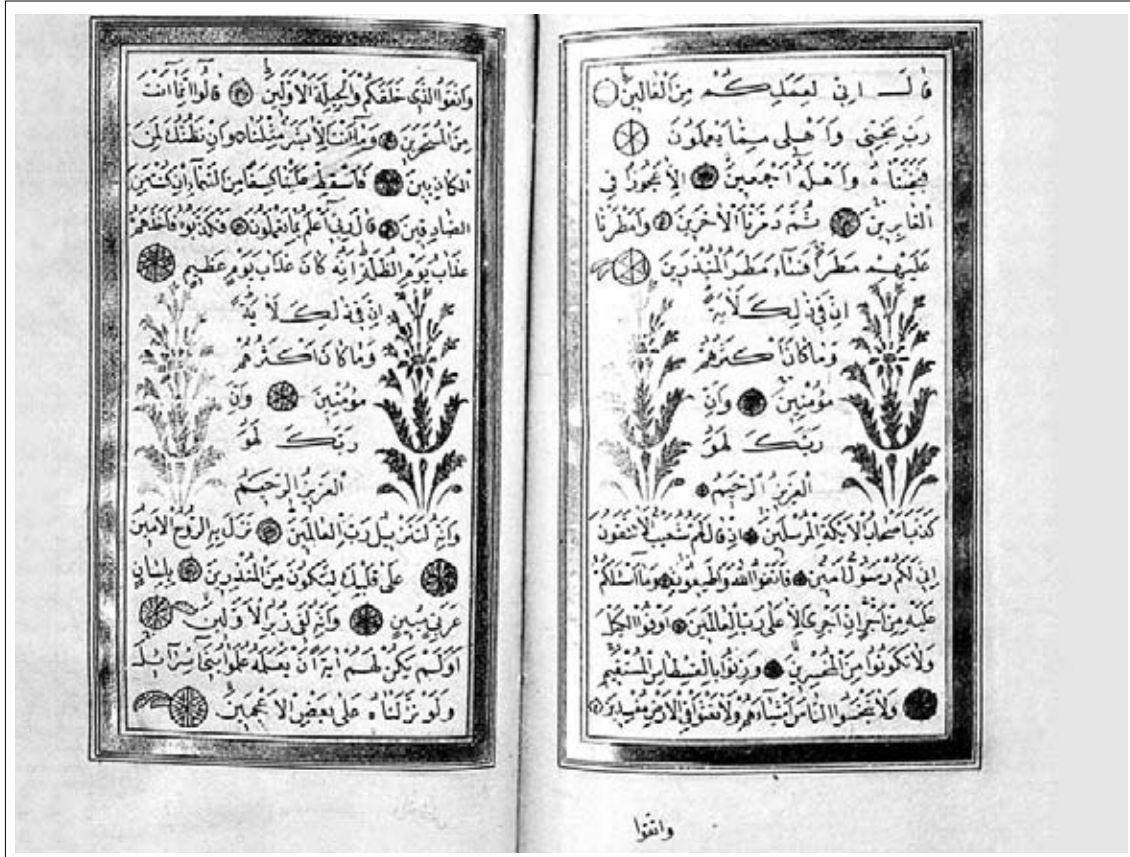 قال اني لعملكم من القالين
رب نجني واهلي مما يعملون
فنجيناه واهله اجمعين الا عجوزا في
الغابرين ثم دمرنا الآخرين وامطرنا
عليهم مطرا فساء مطر المنذرين
ان في ذلك لآية
وما كان اكثرهم
مؤمنين وان
ربك لهو
العزيز الرحيم
كذب اصحاب الايكة المرسلين اذ قال لهم شعيب الا تتقون
اني لكم رسول امين فاتقوا الله واطيعون وما اسئلكم
عليه من اجر ان اجري الا على رب العالمين اوفوا الكيل
ولا تكونوا من المخسرين وزنوا بالقسطاس المستقيم
ولا تبخسوا الناس اشياءهم ولا تعثوا في الارض مفسدين
واتقوا
واتقوا الذي خلقكم والجبلة الاولين قالوا انما انت
من المسحرين وما انت الا بشر مثلنا وان نظنك لمن
الكاذبين فاسقط علينا كسفا من السماء ان كنت من
الصادقين قال ربي اعلم بما تعملون فكذبوه فاخذهم
عذاب يوم الظلة انه كان عذاب يوم عظيم
ان في ذلك لآية
وما كان اكثرهم
مؤمنين وان
ربك لهو
العزيز الرحيم
وانه لتنزيل رب العالمين نزل به الروح الامين
على قلبك لتكون من المنذرين بلسان
عربي مبين وانه لفي زبر الاولين
اولم يكن لهم آية ان يعلمه علموا بني اسرآئيل
ولو نزلناه على بعض الاعجمين